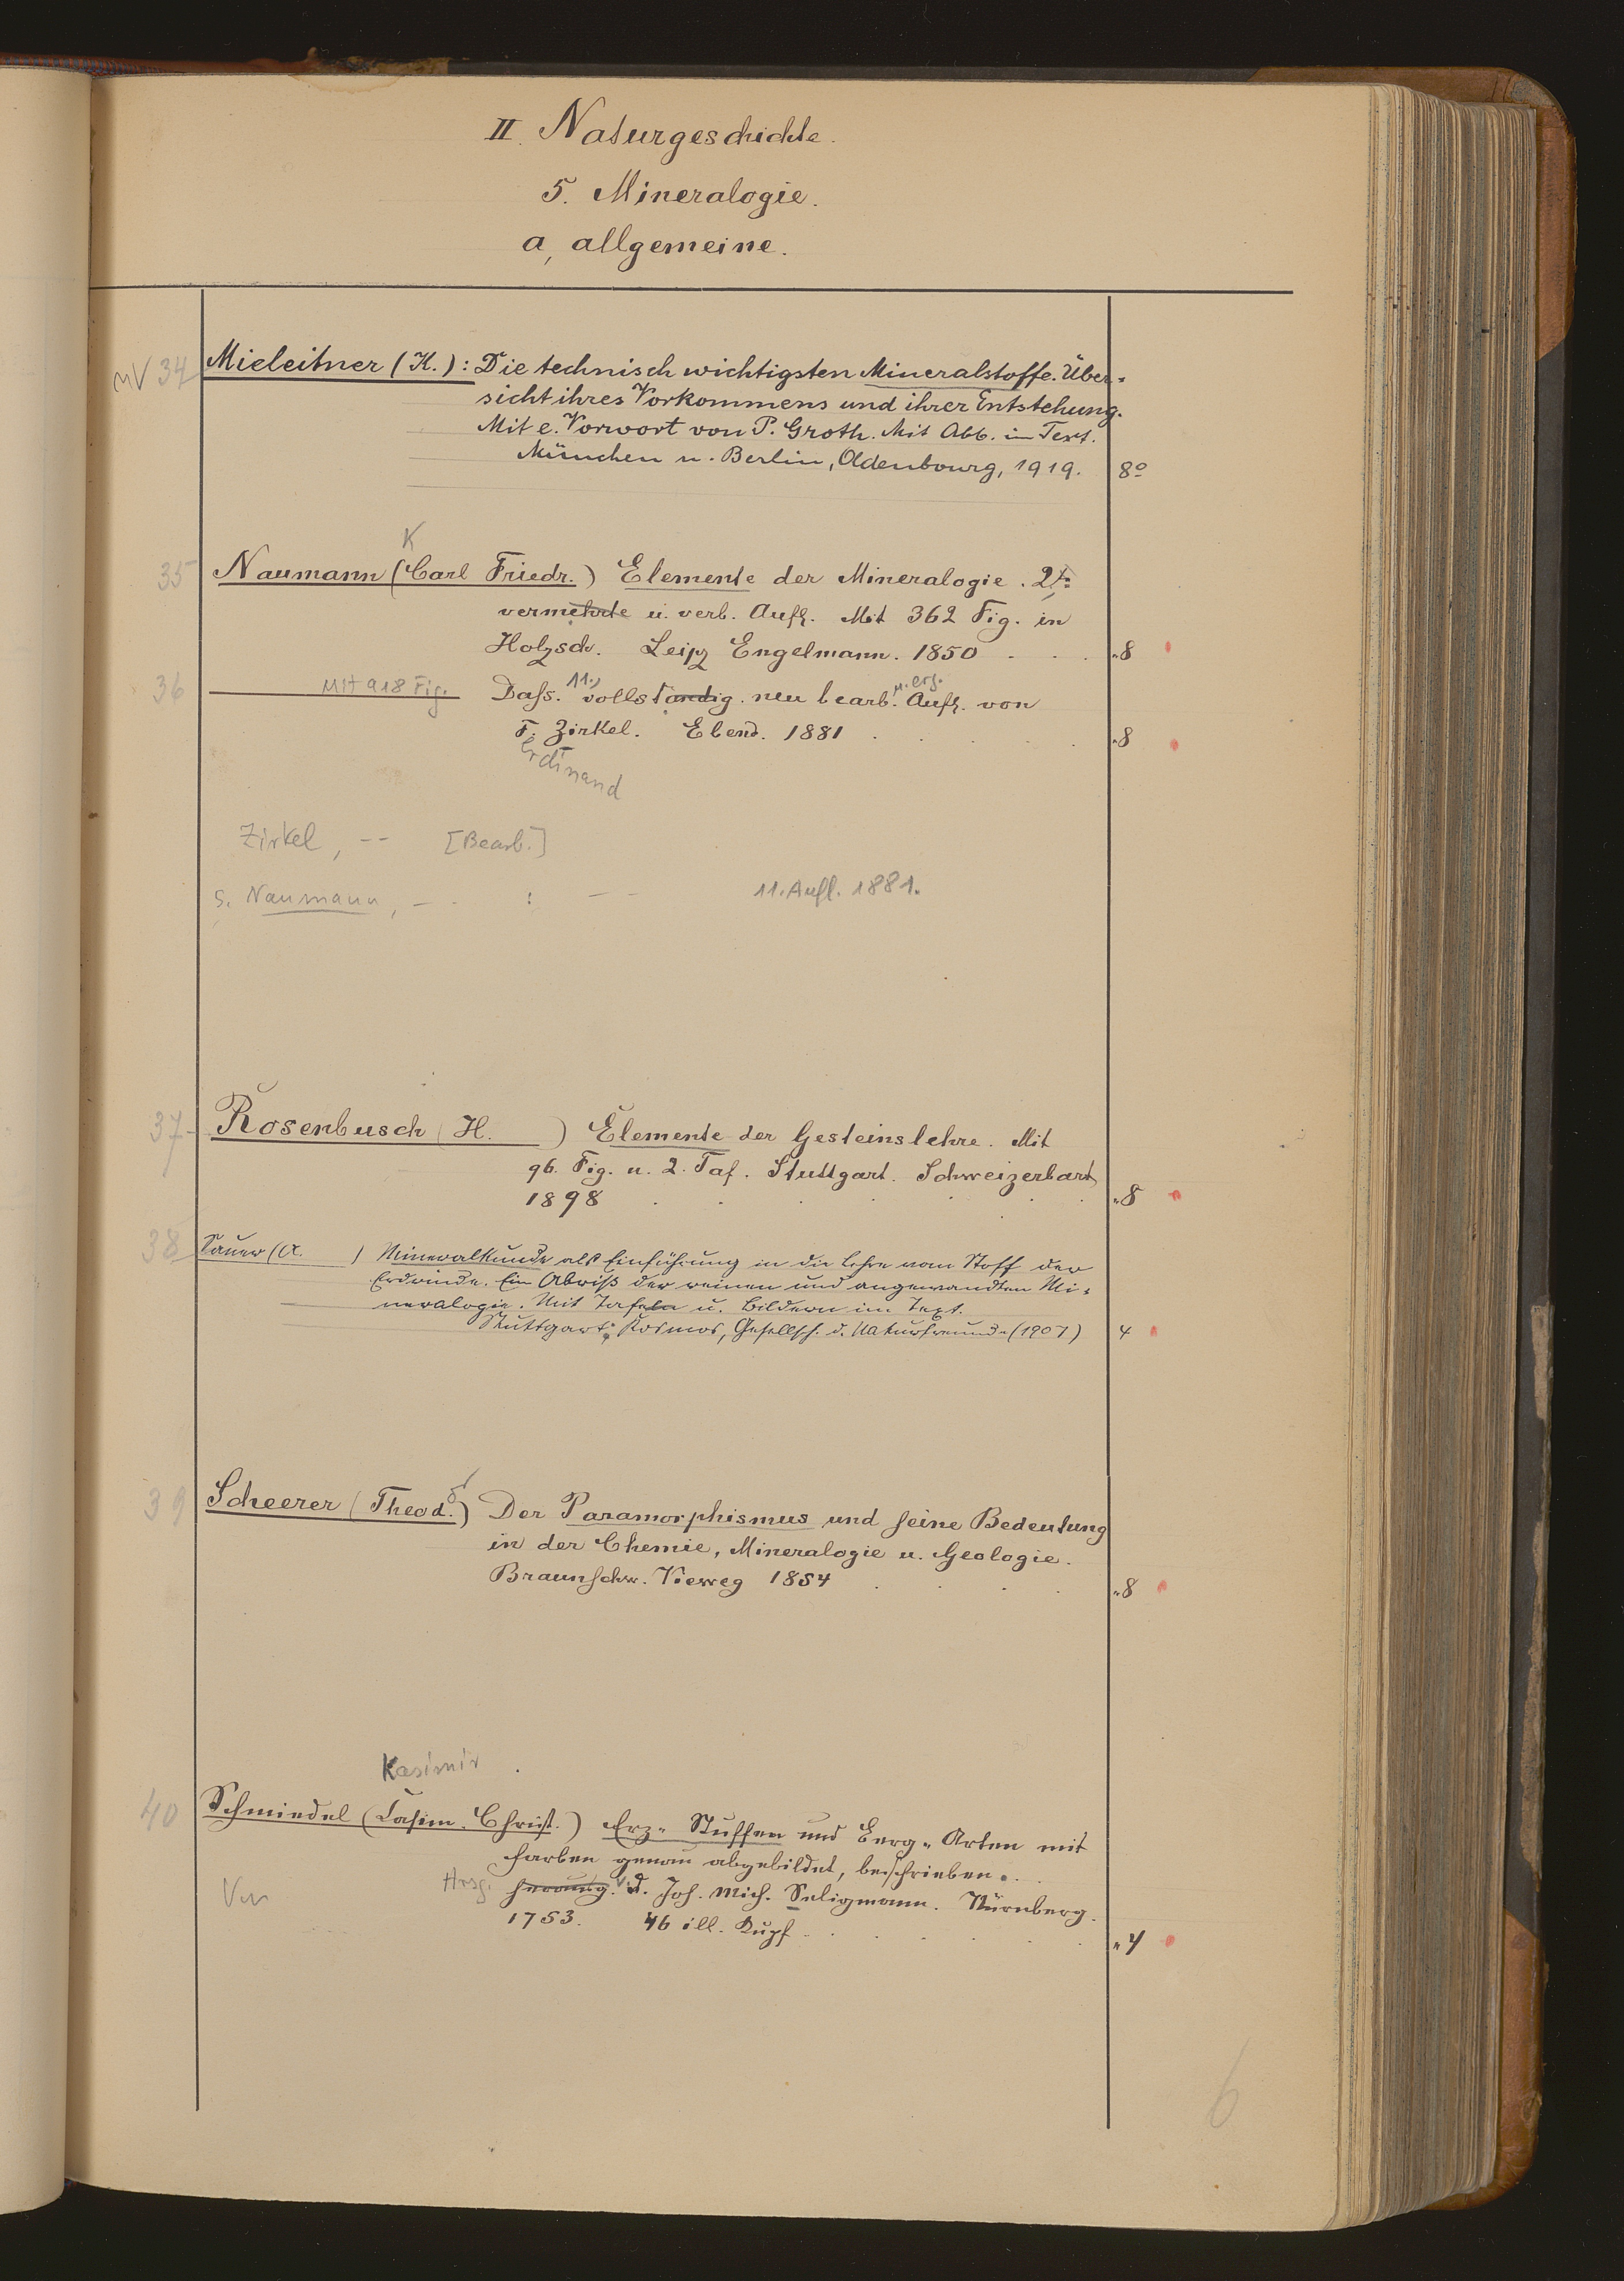 II. Naturgeschichte.
5. Mineralogie.
a, allgemeine.
34 Mieleitner (K.): Die technisch wichtigsten Mineralstoffe. Über-
sicht ihres Vorkommens und ihrer Entstehung.
Mit e. Vorwort von P. Groth. Mit Abb. im Text.
München u. Berlin, Oldenbourg, 1919. 8º
K
35 Naumann (Carl Friedr.) Elemente der Mineralogie. 2te
vermehrte u. verb. Aufl. Mit 362 Fig. in
Holzsch. Leipz Engelmann. 1850 . . . "8
36 Mit 918 Fig. Dass. 11., vollständig. neu bearb. u. erg. Aufl. von
F. Zirkel. Ebend. 1881 . . . . "8
erdinand
Zirkel, -- [Bearb.]
s. Naumann, - . : -- 11. Aufl. 1881.
37 Rosenbusch (H. ) Elemente der Gesteinslehre. Mit
96. Fig. u. 2. Taf. Stuttgart. Schweizerbart
1898 . . . . "8
38 Sauer (A. ) Mineralkunde als Einführung in die Lehre vom Stoff der
Erdrinde. Ein Abriß der reinen und angewandten Mi-
neralogie. Mit Tafeln u. Bildern im Text.
Stuttgart: Kosmos, Gesellsch. d. Naturfreunde (1907) 4
39 Scheerer (Theod.) Der Paramorphismus und seine Bedeutung
in der Chemie, Mineralogie u. Geologie.
Braunschw. Vieweg 1854 . . . . "8
Kasimir
40 Schmiedel (Casim. Christ.) Erz-Stuffen und Berg-Arten mit
Farben genau abgebildet, beschrieben.
Hrsg. herausg. v. d. Joh. Mich. Seligmann. Nürnberg.
1753. 46 ill. Kupf. . . . . "4
6